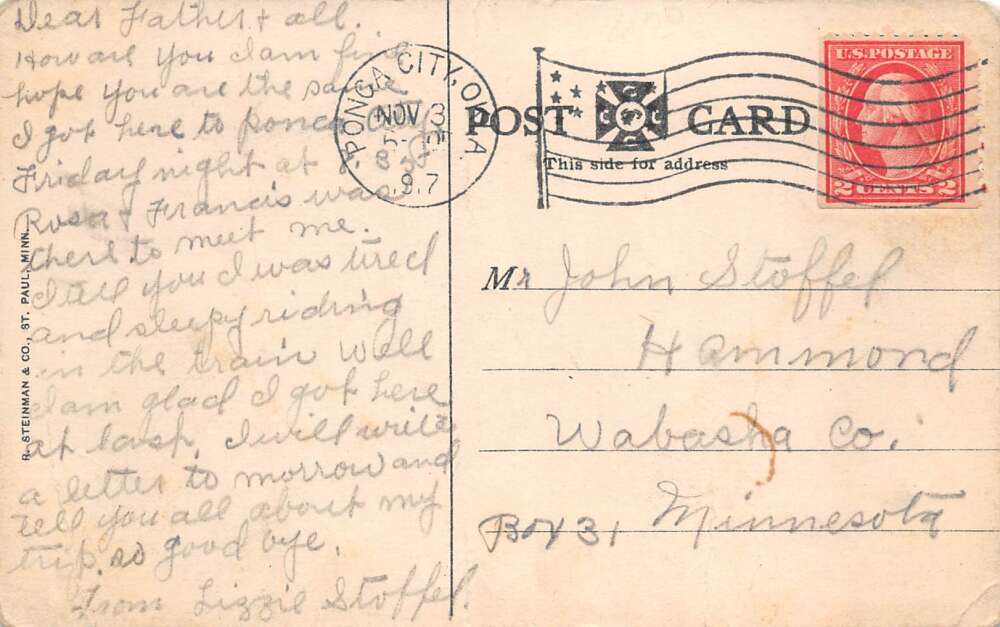 Dear Father + all.
How are you I am fine
hope you are the same
I got here to Ponca City
Friday night at 8
Rosa + Francis was
there to meet me.
I tell you I was tired
and sleepy riding
in the train well
I am glad I got here
at last. I will write
a letter to morrow and
tell you all about my
trip. so good bye.
From Lizzie Stoffel.
R. STEINMAN & CO., ST. PAUL, MINN.
PONCA CITY, OKLA
NOV 3
POST CARD
This side for address
U.S. POSTAGE
2 CENTS 2
Mr John Stoffel
Hammond
Wabasha Co.
Minnesota
Box 31